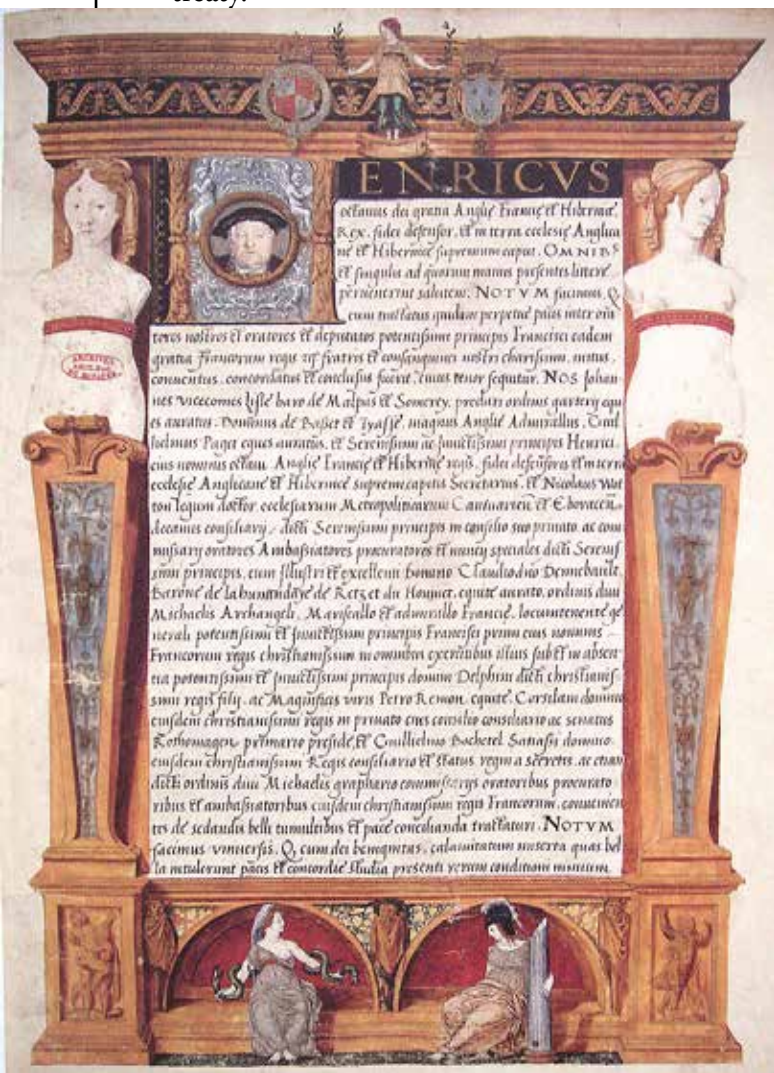 treaty.
ENRICVS
octauus dei gratia Anglię Francię et Hibernię,
Rex, fidei defensor, et in terra ecclesię Anglica
nę et Hibernicę supremum caput. OMNIBꝰ
et singulis ad quorum manus presentes littere
peruenerint salutem. NOTVM facimus, Q,
cum tractatus quidam perpetuę pacis inter ora
tores nostros et oratores et deputatos potentissimi principis Francisci eadem
gratia francorum regis fratris et consanguinei nostri charissimi, initus,
conuentus, concordatus et conclusus fuerit, cuius tenor sequitur. NOS Johan
nes vicecomes Lisle baro de Malpas et Somerey, preclari ordinis garterij equ
es auratus, Dominus de Basset et Tyasse, magnus Anglię Admirallus, Guil
lielmus Paget eques auratus, et Serenissimi ac Inuictissimi principis Henrici
eius nominis octaui Anglię Francię et Hibernię regis, fidei defensoris et in terra
ecclesię Anglicanę et Hibernicę supremi capitis Secretarius, et Nicolaus Wot
ton legum doctor ecclesiarum Metropoliticarum Cantuarien et Eboracen
decanus consiliarij dicti Serenissimi principis in consilio suo priuato ac com
missarij oratores Ambassiatores procuratores et nuncij speciales dicti Sereniss
simi principis, cum Illustri et excellenti domino Claudio Dennebault,
Barone de Retz et du Hommet, equite aurato, ordinis diui
Michaelis Archangeli, Marescallo et admirallo Francię, locumtenente ge
nerali potentissimi et Inuictissimi principis Francisci primi eius nominis
Francorum regis christianissimi in omnibus exercitibus illius sub et in absen
tia potentissimi et Inuictissimi principis domini Delphini dicti christianis
simi regis filij, ac Magnificis viris Petro Remon, equite, domino
eiusdem christianissimi regis in priuato eius consilio consiliario ac senatus
Rothomagen primario preside et Guillielmo Bochetel Sattasij domino
eiusdem christianissimi Regis consiliario et status regni a secretis, ac etiam
dicti ordinis diui Michaelis graphario commissarijs oratoribus procurato
ribus et ambassiatoribus eiusdem christianissimi regis Francorum, conuenien
tes de sedandis belli tumultibus et pace concilianda tractaturi. NOTVM
facimus vniuersis, Q, cum dei benignitas, calamitatum miserta quas bel
la intulerunt pacis et concordię studia presenti rerum conditioni